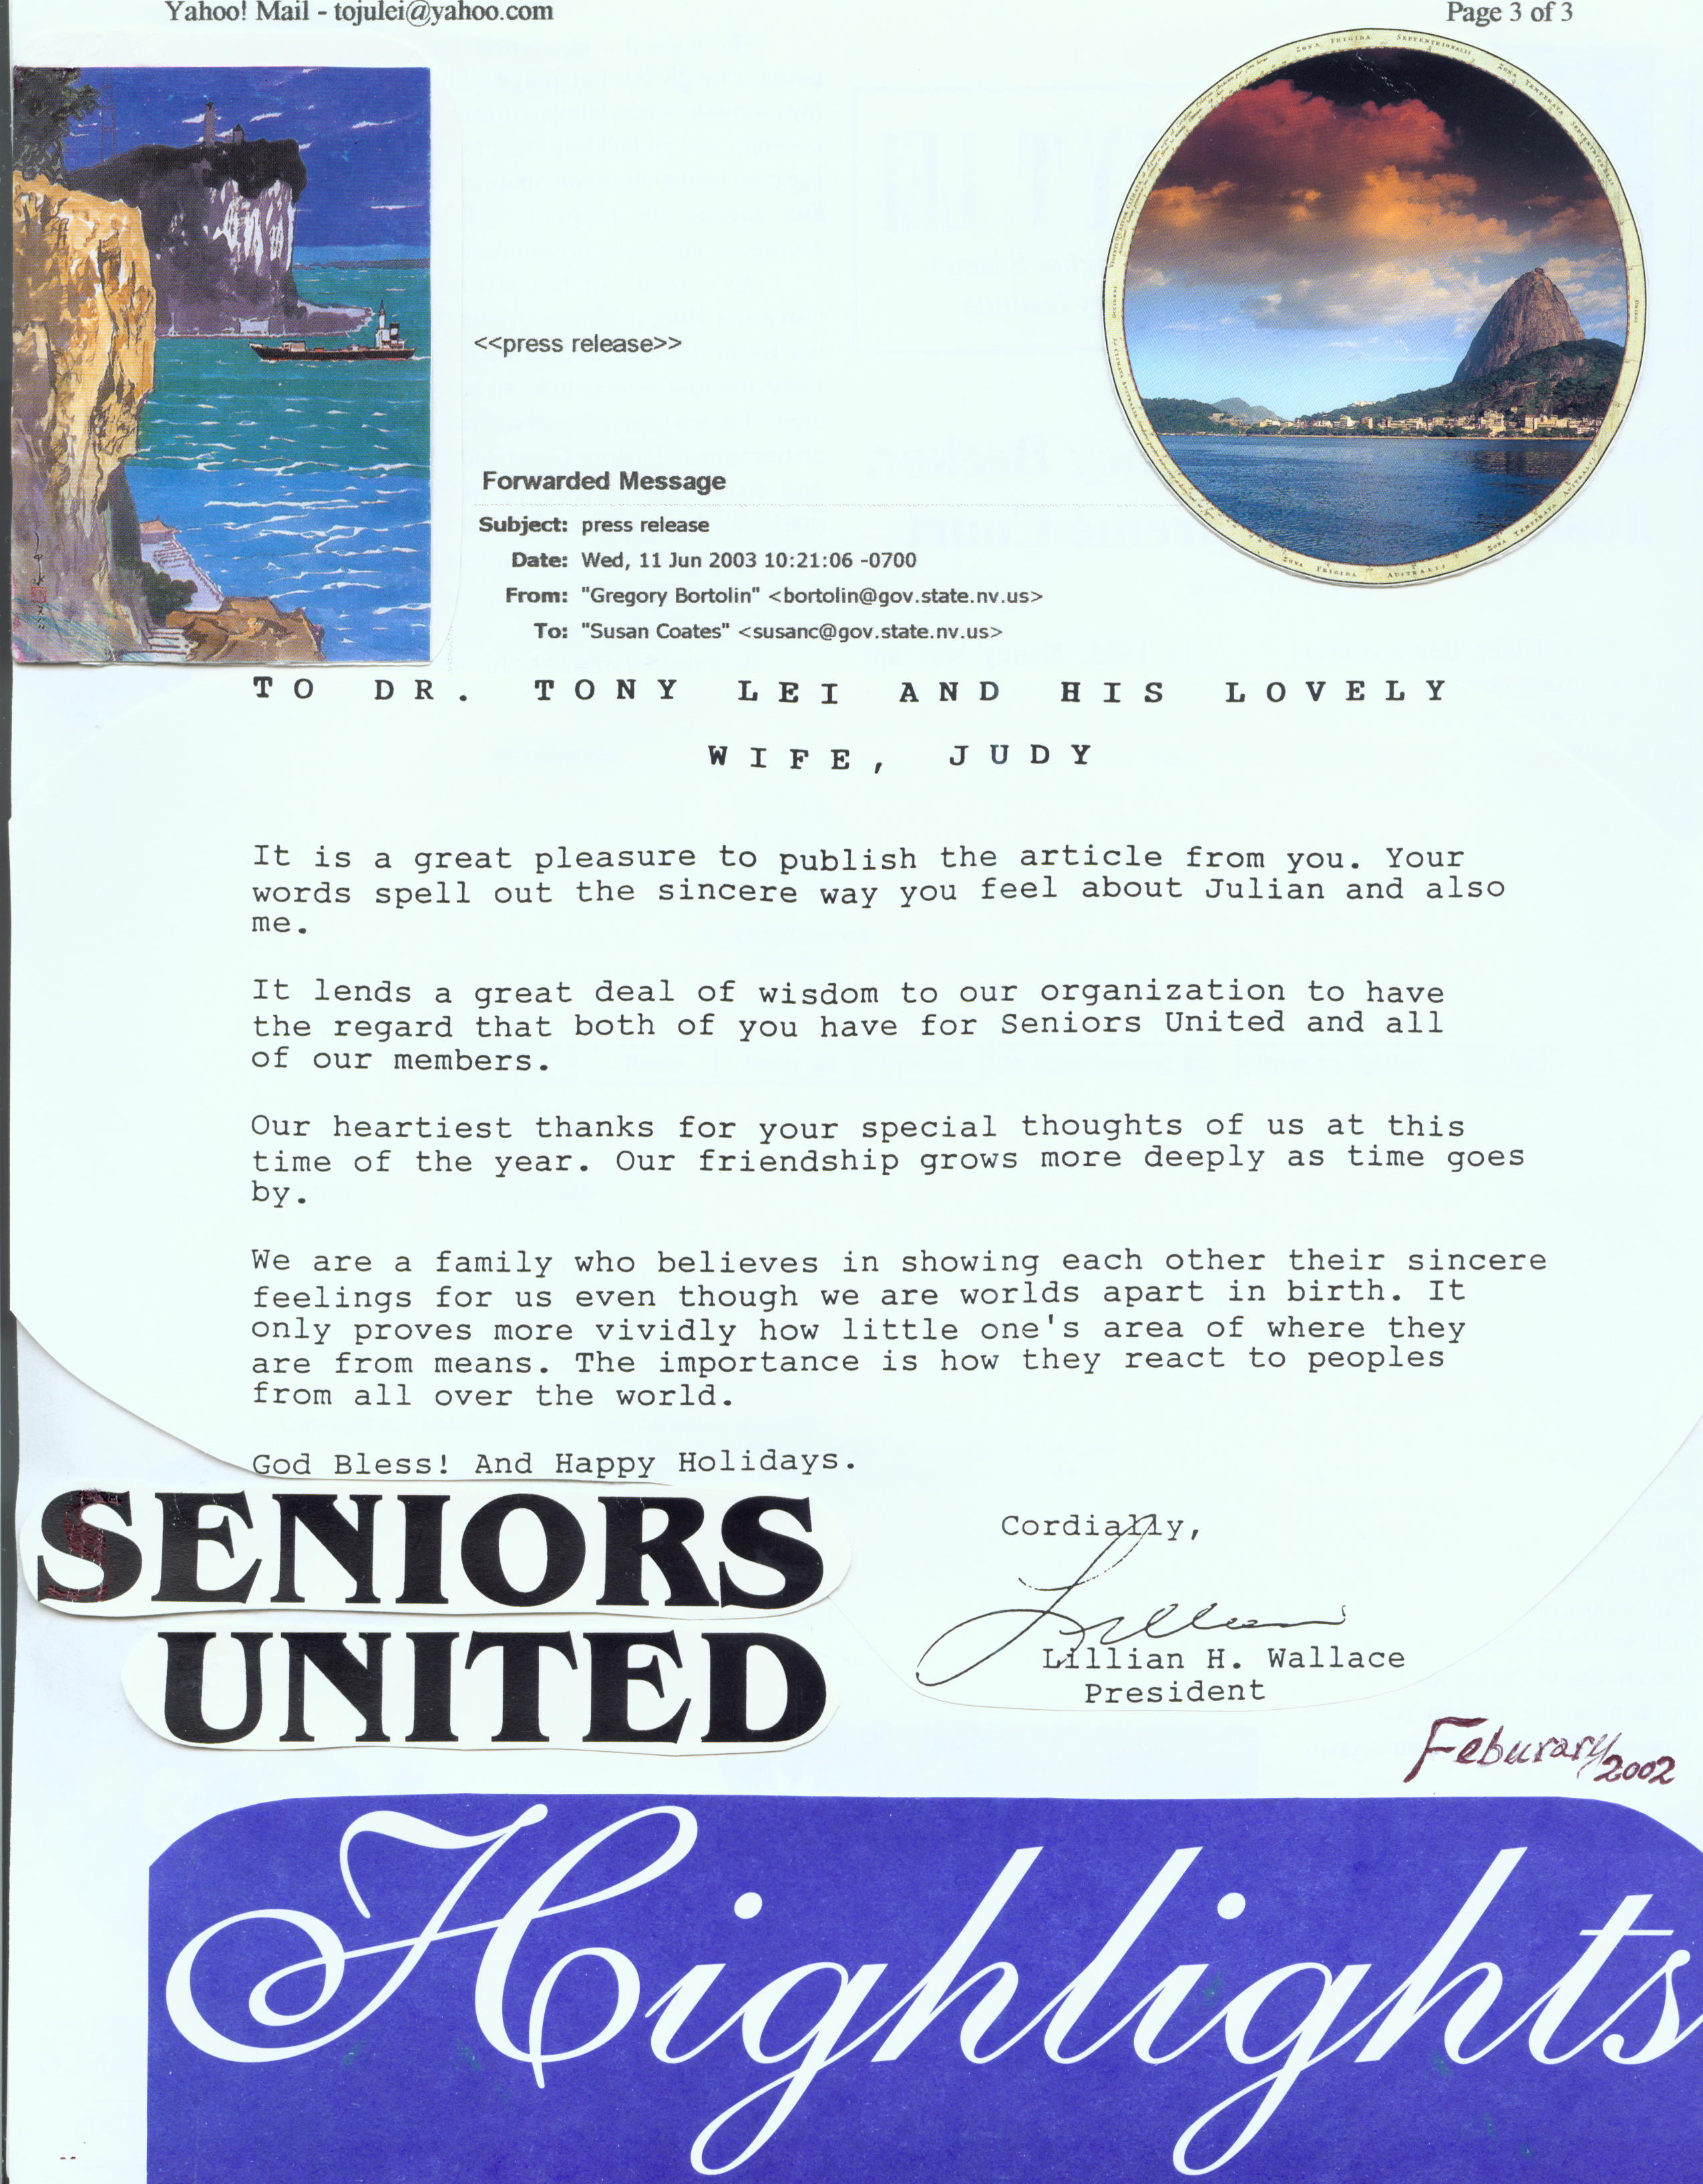 Yahoo! Mail - tojulei@yahoo.com
Page 3 of 3
<<press release>>
Forwarded Message
Subject: press release
Date: Wed, 11 Jun 2003 10:21:06 -0700
From: "Gregory Bortolin" <bortolin@gov.state.nv.us>
To: "Susan Coates" <susanc@gov.state.nv.us>
TO DR. TONY LEI AND HIS LOVELY
WIFE, JUDY
It is a great pleasure to publish the article from you. Your
words spell out the sincere way you feel about Julian and also
me.
It lends a great deal of wisdom to our organization to have
the regard that both of you have for Seniors United and all
of our members.
Our heartiest thanks for your special thoughts of us at this
time of the year. Our friendship grows more deeply as time goes
by.
We are a family who believes in showing each other their sincere
feelings for us even though we are worlds apart in birth. It
only proves more vividly how little one's area of where they
are from means. The importance is how they react to peoples
from all over the world.
God Bless! And Happy Holidays.
SENIORS
UNITED
Cordially,
Lillian
Lillian H. Wallace
President
Feburary 2002
Highlights